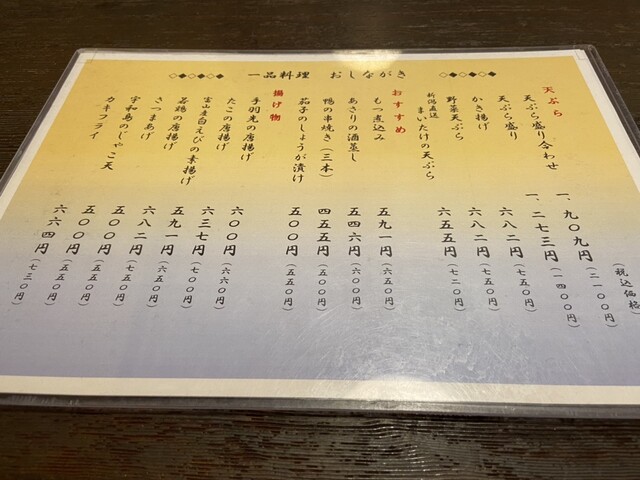 ◇◆◇◆◇◆ 一品料理 おしながき ◇◆◇◆◇◆
(税込価格)
天ぷら
天ぷら盛り合わせ 一、九〇九円(二一〇〇円)
天ぷら盛り 一、二七三円(一四〇〇円)
かき揚げ 六八二円(七五〇円)
野菜天ぷら 六八二円(七五〇円)
新潟直送
まいたけの天ぷら 六五五円(七二〇円)
おすすめ
もつ煮込み 五九一円(六五〇円)
あさりの酒蒸し 五四六円(六〇〇円)
鴨の串焼き(三本) 四五五円(五〇〇円)
茄子のしょうが漬け 五〇〇円(五五〇円)
揚げ物
手羽先の唐揚げ 六〇〇円(六六〇円)
たこの唐揚げ 六三七円(七〇〇円)
富山産白えびの素揚げ 五九一円(六五〇円)
若鶏の唐揚げ 六八二円(七五〇円)
さつまあげ 五〇〇円(五五〇円)
宇和島のじゃこ天 五〇〇円(五五〇円)
カキフライ 六六四円(七三〇円)